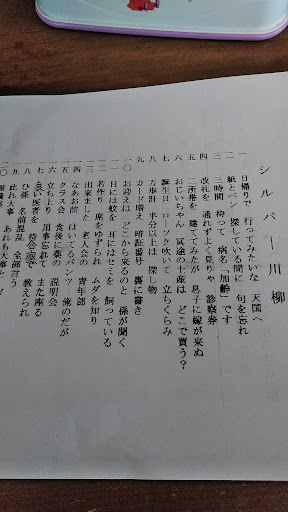 シルバー川柳
一 日帰りで 行ってみたいな 天国へ
二 紙とペン 探している間に 句を忘れ
三 三時間 待って 病名「加齢」です
四 改札を 通れずよく見りゃ 診察券
五 二所帯を 建ててみたが 息子に嫁が来ぬ
六 おじいちゃん 冥途の土産は どこで買う?
七 誕生日 ローソク吹いて 立ちくらみ
八 万歩計 半分以上は 探し物
九 カード増え 暗証番号 裏に書き
一〇 お迎えは どこから来るのと 孫が聞く
一一 目には蚊を 耳にはセミを 飼っている
一二 若作り 席をゆずられ ムダを知り
一三 出来ました 老人会の 青年部
一四 なあお前 はいてるパンツ 俺のだが
一五 クラス会 食後に薬の 説明会
一六 立ち上り 用事忘れて また座る
一七 良い医者を 待合室で 教えられ
一八 ひ孫 名前混乱 全部言う
一九 此れ大事 あれも大事と
二〇